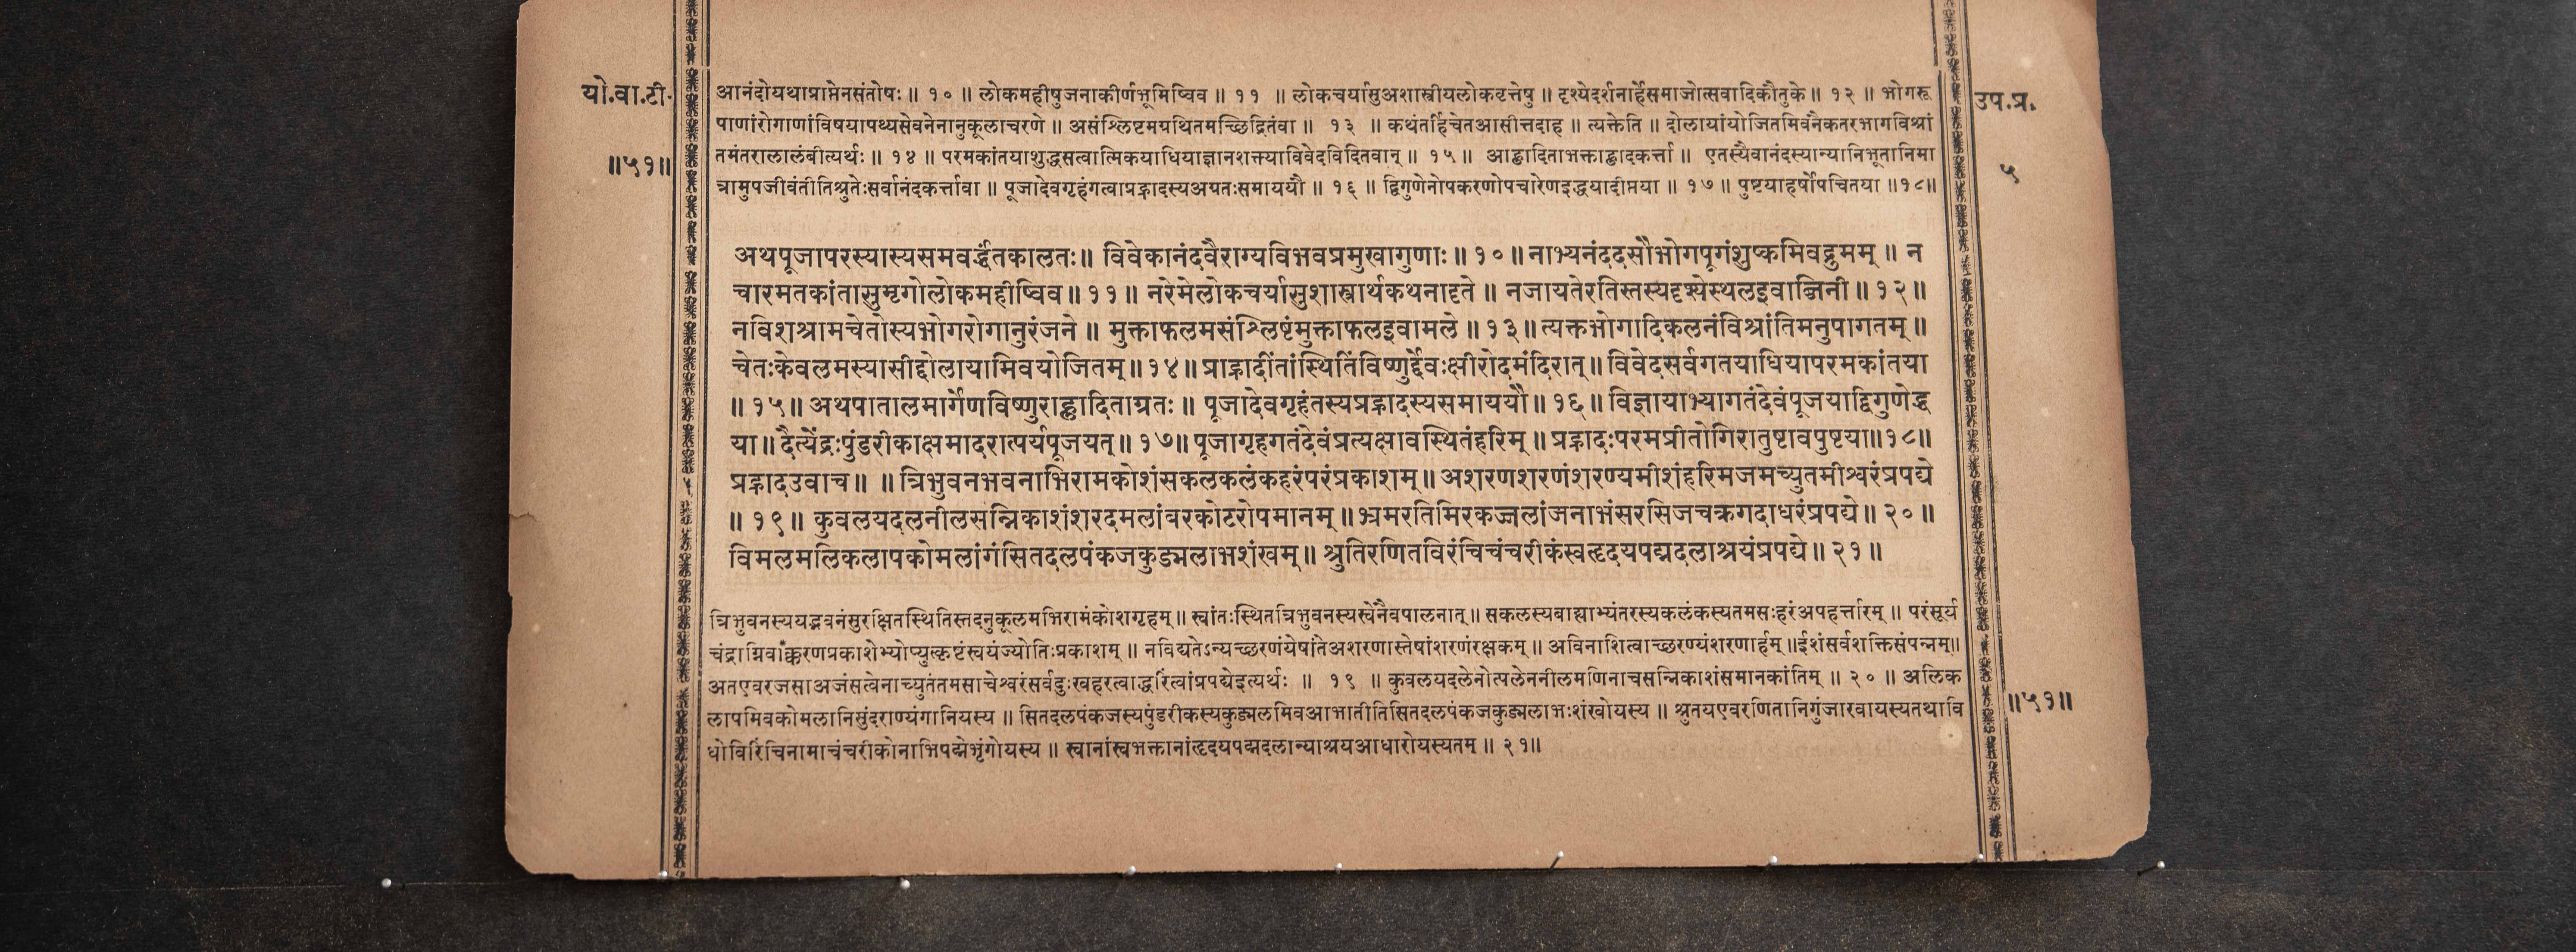 यो.वा.टी.
॥५१॥
आनंदोयथाप्राप्तेनसंतोषः ॥ १० ॥ लोकमहीषुजनाकीर्णभूमिष्विव ॥ ११ ॥ लोकचर्यासुअशास्त्रीयलोकवृत्तेषु ॥ दृश्येदर्शनार्हेसमाजोत्सवादिकौतुके ॥ १२ ॥ भोगरू
पाणांरोगाणांविषयापथ्यसेवनेनानुकूलाचरणे ॥ असंश्लिष्टमग्रथितमच्छिद्रितंवा ॥ १३ ॥ कथंतर्हिचेतआसीत्तदाह ॥ त्यक्तेति ॥ दोलायांयोजितमिवनैकतरभागविश्रां
तमंतरालालंबीत्यर्थः ॥ १४ ॥ परमकांतयाशुद्धसत्वात्मिकयाधियाज्ञानशक्त्याविवेदविदितवान् ॥ १५ ॥ आह्लादिताभक्ताह्लादकर्त्ता ॥ एतस्यैवानंदस्यान्यानिभूतानिमा
त्रामुपजीवंतीतिश्रुतेःसर्वानंदकर्त्तावा ॥ पूजादेवगृहंगत्वाप्रह्लादस्यअग्रतःसमाययौ ॥ १६ ॥ द्विगुणेनोपकरणोपचारेणइद्धयादीप्तया ॥ १७ ॥ पुष्टयाहर्षोपचितया ॥१८॥
अथपूजापरस्यास्यसमवर्द्धंतकालतः ॥ विवेकानंदवैराग्यविभवप्रमुखागुणाः ॥ १० ॥ नाभ्यनंददसौभोगपूगंशुष्कमिवद्रुमम् ॥ न
चारमतकांतासुमृगोलोकमहीष्विव ॥ ११ ॥ नरेमेलोकचर्यासुशास्त्रार्थकथनादृते ॥ नजायतेरतिस्तस्यदृश्येस्थलइवाब्जिनी ॥ १२ ॥
नविशश्रामचेतोस्यभोगरोगानुरंजने ॥ मुक्ताफलमसंश्लिष्टंमुक्ताफलइवामले ॥ १३ ॥ त्यक्तभोगादिकलनंविश्रांतिमनुपागतम् ॥
चेतःकेवलमस्यासीद्दोलायामिवयोजितम् ॥ १४ ॥ प्राह्लादींतांस्थितिंविष्णुर्द्देवःक्षीरोदमंदिरात् ॥ विवेदसर्वगतयाधियापरमकांतया
॥ १५ ॥ अथपातालमार्गेणविष्णुराह्लादिताग्रतः ॥ पूजादेवगृहंतस्यप्रह्लादस्यसमाययौ ॥ १६ ॥ विज्ञायाभ्यागतंदेवंपूजयाद्विगुणेद्ध
या ॥ दैत्येंद्रःपुंडरीकाक्षमादरात्पर्यपूजयत् ॥ १७ ॥ पूजागृहगतंदेवंप्रत्यक्षावस्थितंहरिम् ॥ प्रह्लादःपरमप्रीतोगिरातुष्टावपुष्टया ॥१८॥
प्रह्लादउवाच ॥ ॥ त्रिभुवनभवनाभिरामकोशंसकलकलंकहरंपरंप्रकाशम् ॥ अशरणशरणंशरण्यमीशंहरिमजमच्युतमीश्वरंप्रपद्ये
॥ १९ ॥ कुवलयदलनीलसन्निकाशंशरदमलांबरकोटरोपमानम् ॥ भ्रमरतिमिरकज्जलांजनाभंसरसिजचक्रगदाधरंप्रपद्ये ॥ २० ॥
विमलमलिकलापकोमलांगंसितदलपंकजकुड्मलाभशंखम् ॥ श्रुतिरणितविरंचिचंचरीकंस्वहृदयपद्मदलाश्रयंप्रपद्ये ॥ २१ ॥
त्रिभुवनस्ययद्भवनंसुरक्षितस्थितिस्तदनुकूलमभिरामंकोशगृहम् ॥ स्वांतःस्थितत्रिभुवनस्यस्वेनैवपालनात् ॥ सकलस्यबाह्याभ्यंतरस्यकलंकस्यतमसःहरंअपहर्त्तारम् ॥ परंसूर्य
चंद्राग्निवाक्करणप्रकाशेभ्योप्युत्कृष्टंस्वयंज्योतिःप्रकाशम् ॥ नविद्यतेऽन्यच्छरणंयेषांतेअशरणास्तेषांशरणंरक्षकम् ॥ अविनाशित्वाच्छरण्यंशरणार्हम् ॥ईशंसर्वशक्तिसंपन्नम्॥
अतएवरजसाअजंसत्वेनाच्युतंतमसाचेश्वरंसर्वदुःखहरत्वाद्धरिंत्वांप्रपद्येइत्यर्थः ॥ १९ ॥ कुवलयदलेनोत्पलेननीलमणिनाचसन्निकाशंसमानकांतिम् ॥ २० ॥ अलिक
लापमिवकोमलानिसुंदराण्यंगानियस्य ॥ सितदलपंकजस्यपुंडरीकस्यकुड्मलमिवआभातीतिसितदलपंकजकुड्मलाभःशंखोयस्य ॥ श्रुतयएवरणितानिगुंजारवायस्यतथावि
धोविरिंचिनामाचंचरीकोनाभिपद्मेभृंगोयस्य ॥ स्वानांस्वभक्तानांहृदयपद्मदलान्याश्रयआधारोयस्यतम् ॥ २१॥
उप.प्र.
५
॥५१॥